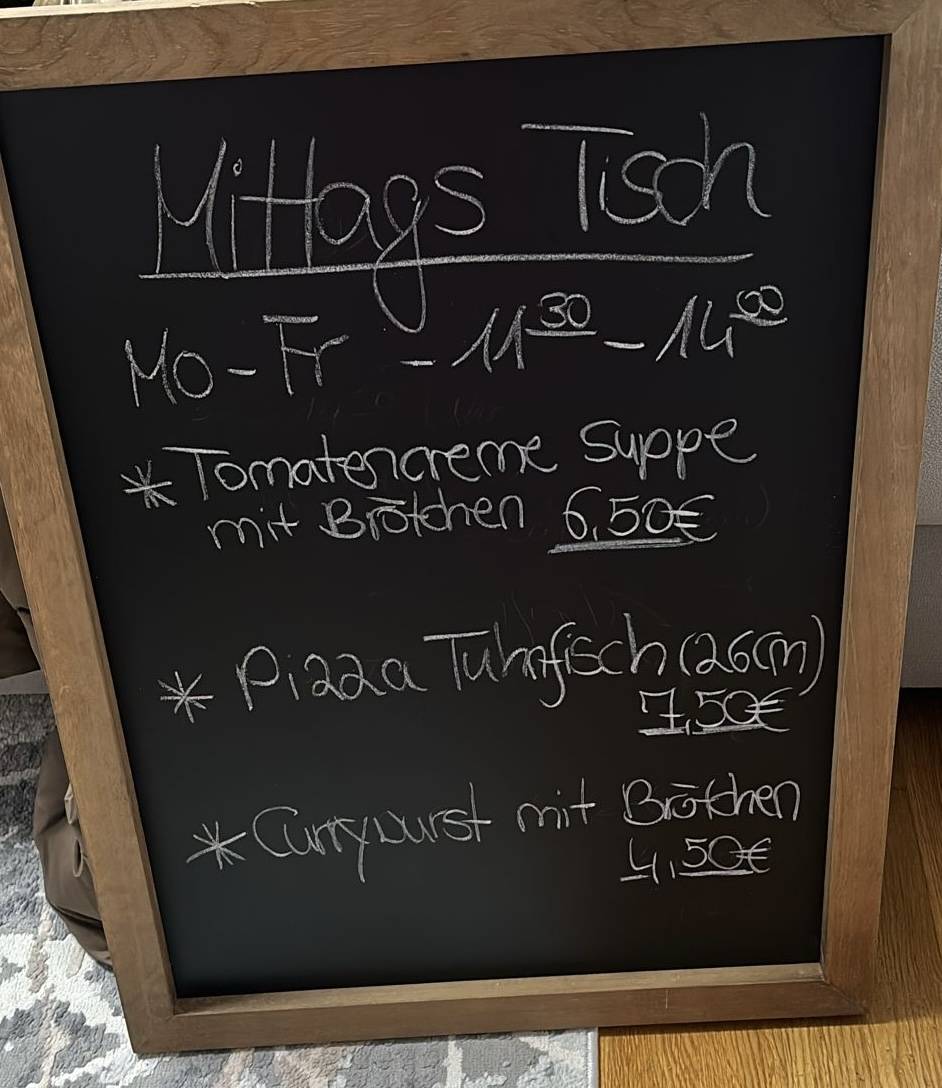 Mittags Tisch
Mo-Fr - 11 30 - 14 00
* Tomatencreme Suppe
mit Brötchen 6,50€
* Pizza Tuhnfisch (26cm)
7,50€
* Currywurst mit Brötchen
4,50€